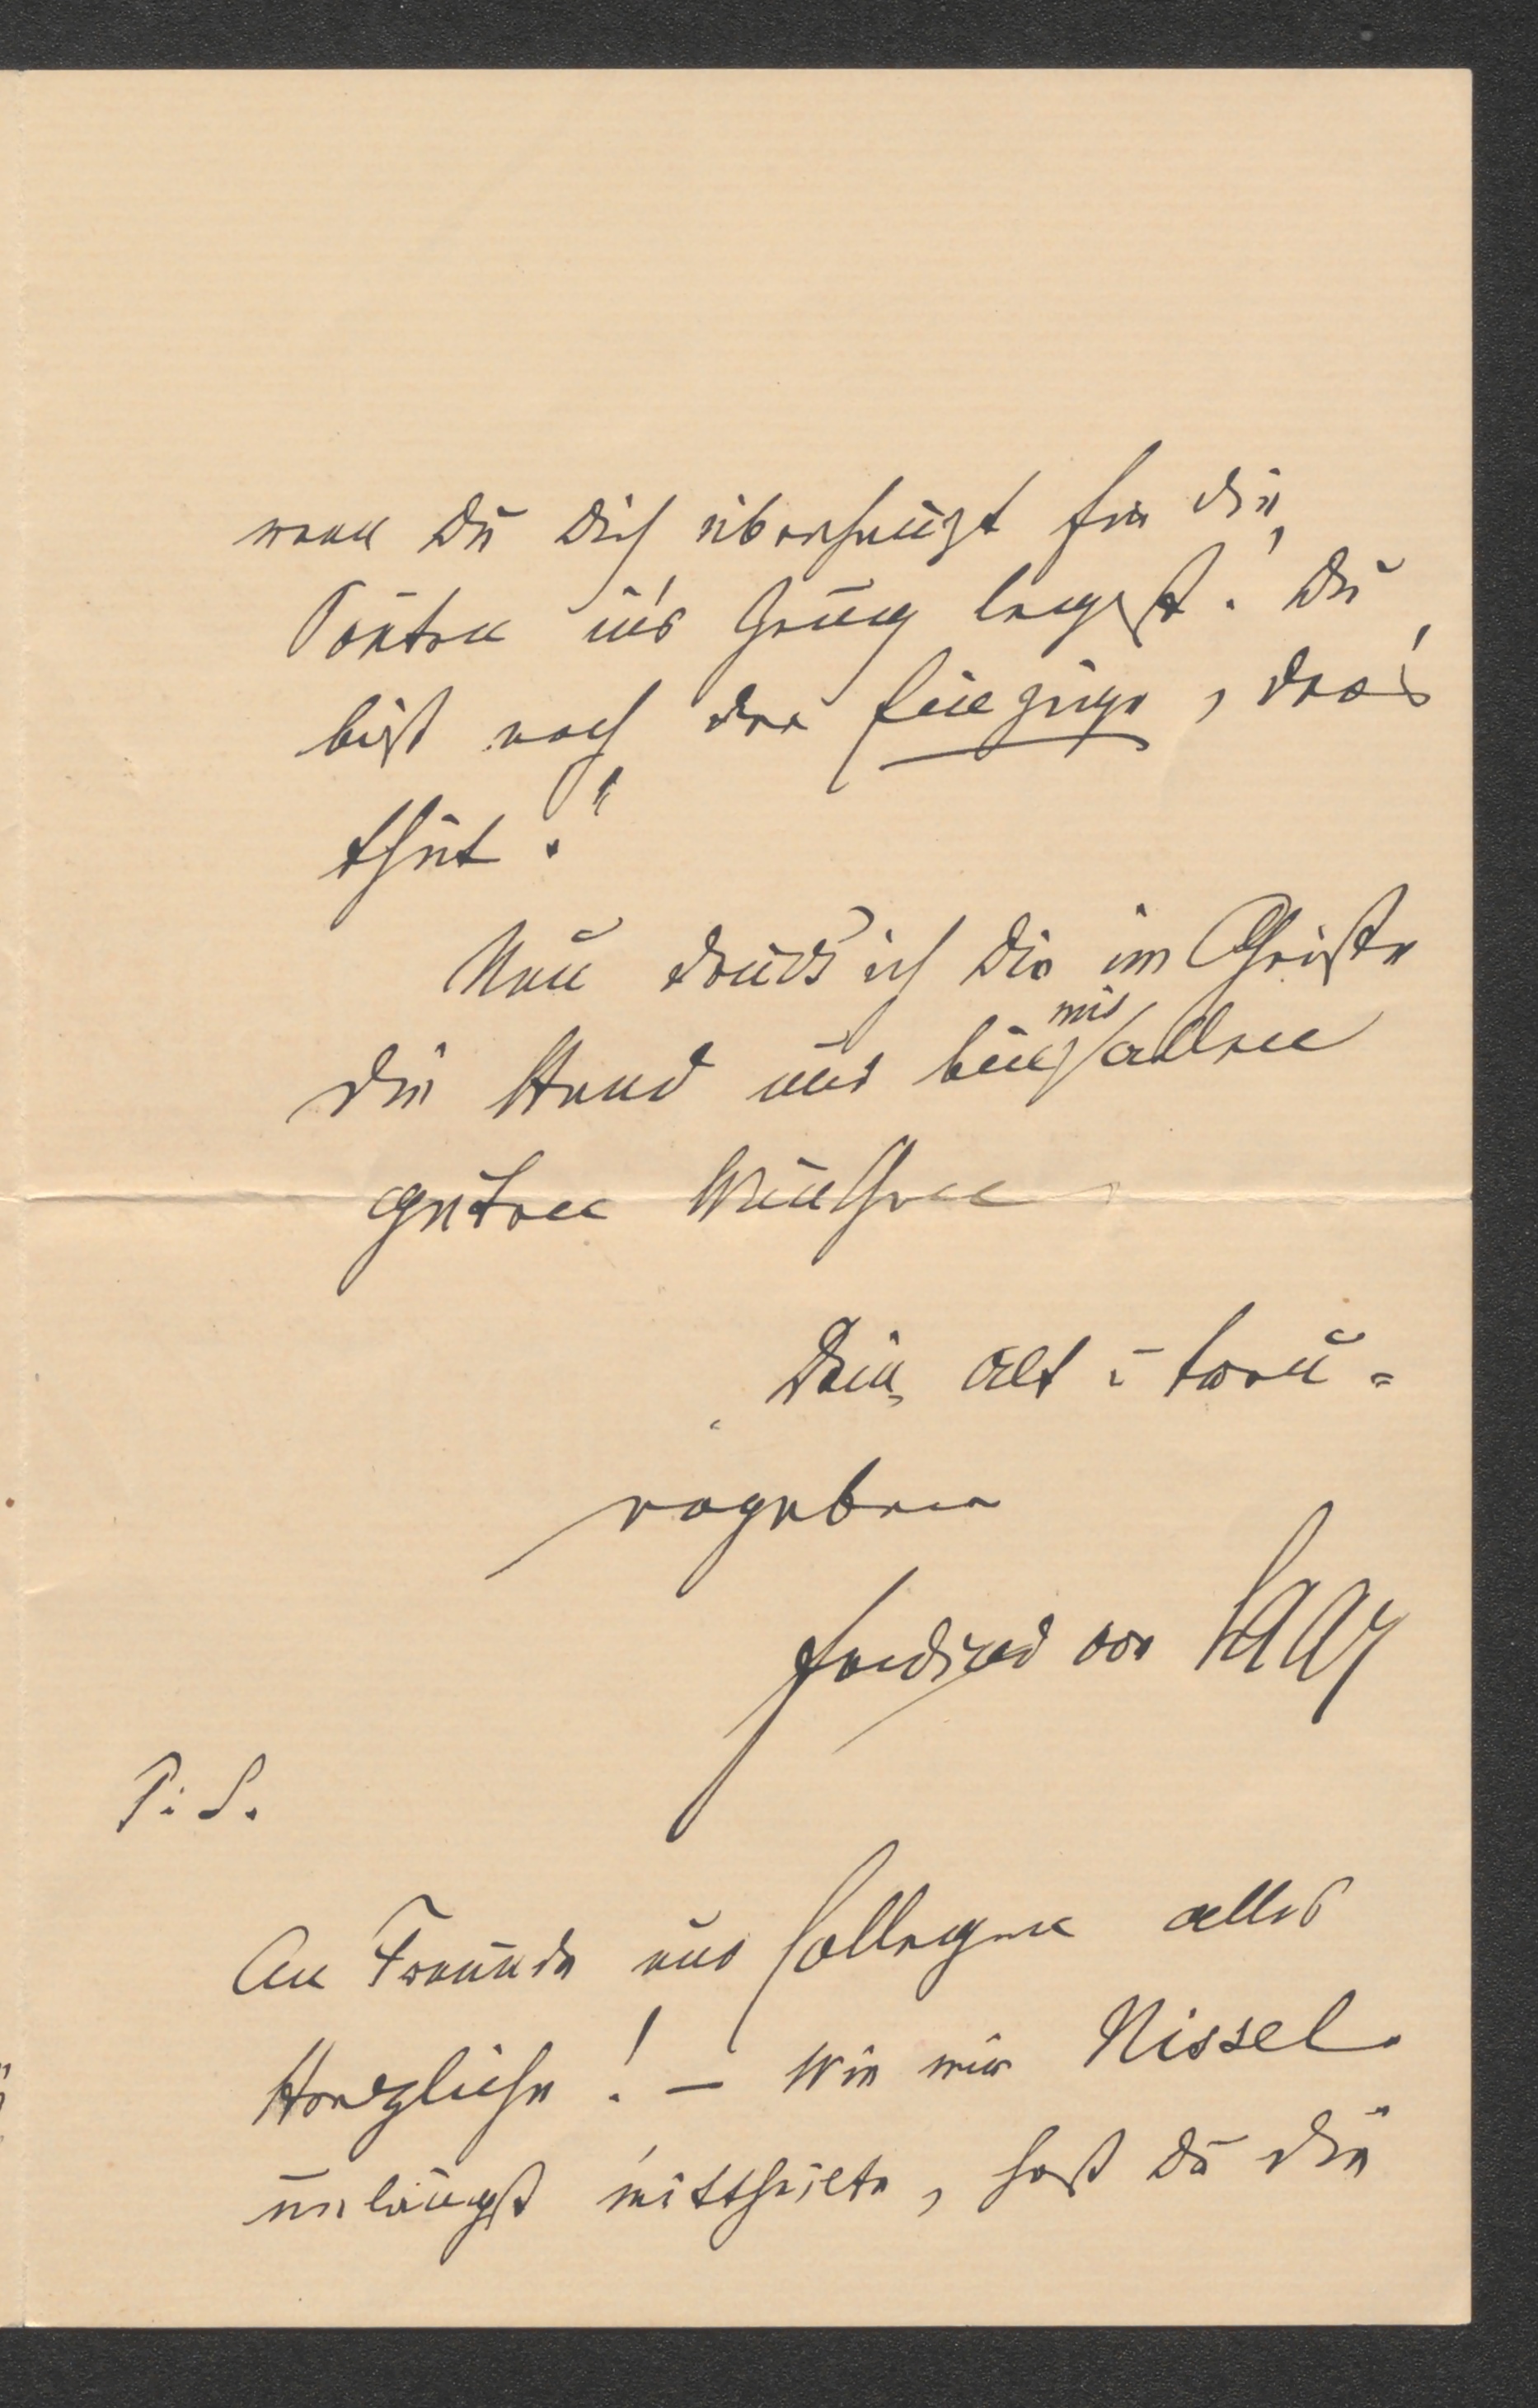 wenn Du Dich überhaupt für die
Poëten in's Zeug legst. Du
bist noch der Einzige, der's
thut."
Neu drück' ich Dir im Geiste
die Hand und bin mit allen
guten Wünschen
Dein alt u treu-
ergebener
Ferdinand von Saar
P. S.
An Freunde und Collegen alles
Herzliche! – Wie mir Nissel
unlängst mittheilte, hast Du die